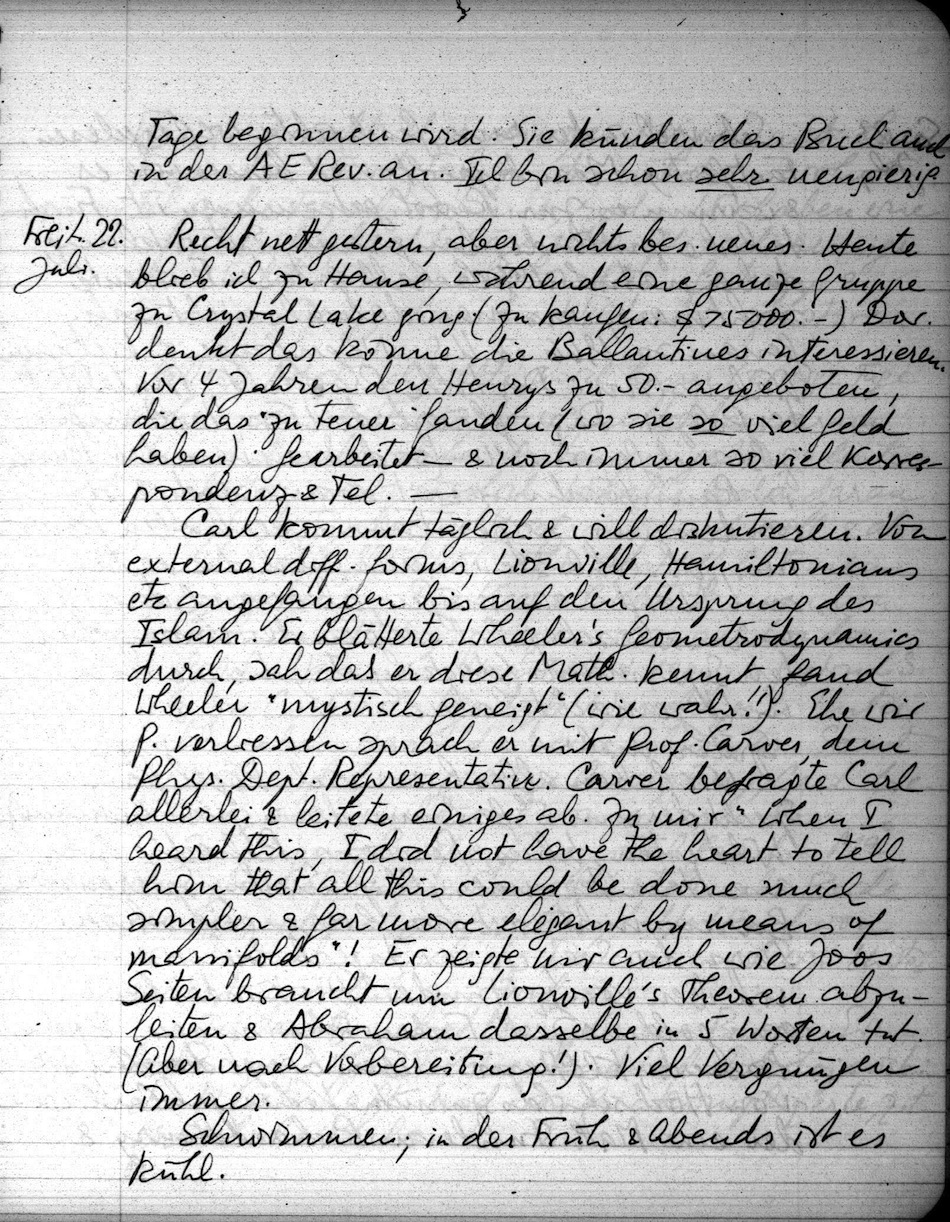 Tage beginnen wird. Sie künden das Buch auch
in der A E Rev. an. Ich bin schon sehr neugierig
Freit. 22.
Juli.
Recht nett gestern, aber nichts bes. neues. Heute
blieb ich zu Hause, während eine ganze Gruppe
zu Crystal Lake ging (zu kaufen: $ 75000.-) Dor.
denkt das könne die Ballantines interessieren.
Vor 4 Jahren den Henrys zu 50.- angeboten,
die das "zu teuer" fanden (wo sie so viel Geld
haben). Gearbeitet — & noch immer so viel Korres-
pondenz & Tel. —
Carl kommt täglich & will diskutieren. Von
external diff. forms, Liouville, Hamiltonians
etc angefangen bis auf den Ursprung des
Islam. Er blätterte Wheeler's Geometrodynamics
durch, sah das er diese Math. kennt fand
Wheeler "mystisch geneigt" (wie wahr!!). Ehe wir
P. verliessen sprach er mit Prof. Carver, dem
Phys. Dept. Representative. Carver befragte Carl
allerlei & leitete einiges ab. Zu mir "When I
heard this, I did not have the heart to tell
him that all this could be done much
simpler & far more elegant by means of
mannifolds"! Er zeigte mir auch wie Joos
Seiten braucht um Liouville's Theorem abzu-
leiten & Abraham dasselbe in 5 Worten tut.
(Aber nach Vorbereitung!). Viel Vergnügen
immer.
Schwimmen; in der Früh & Abends ist es
kühl.